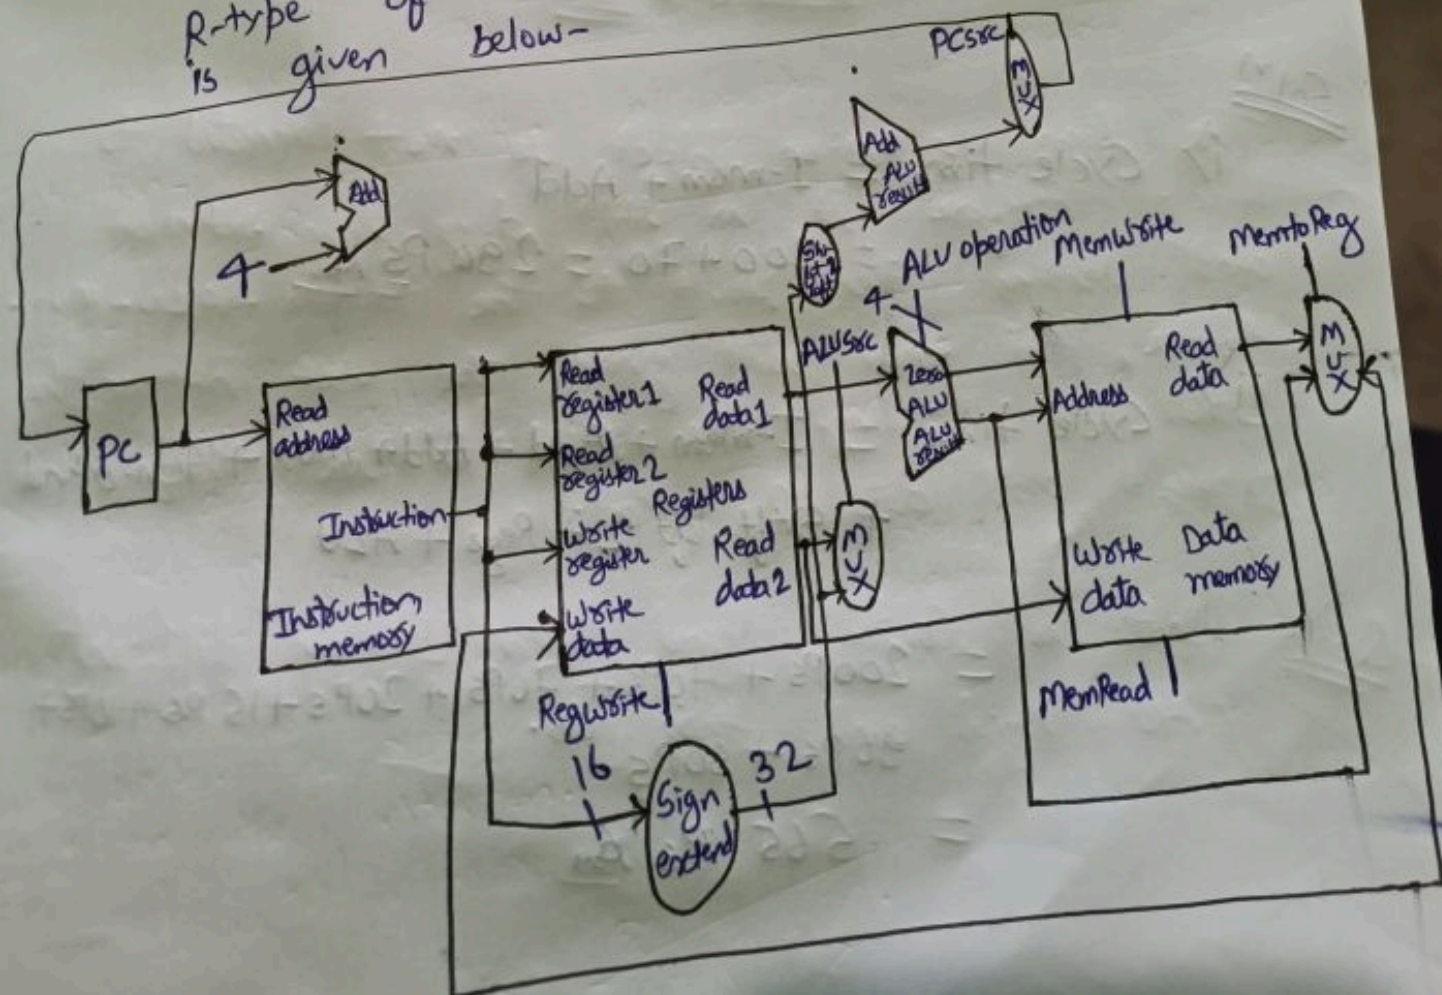 R-type of
is given below-
PCsrc
MUX
Add
ALU
result
Add
4
Shi-
ft-2
left
ALU operation
4
MemWrite
MemtoReg
ALUSrc
PC
Read
address
Instruction
Instruction
memory
Read
register1
Read
register2
Write
register
Write
data
Registers
Read
data1
Read
data2
RegWrite
MUX
Zero
ALU
ALU
result
Address
Read
data
Write
data
Data
memory
MemRead
MUX
16
Sign
extend
32